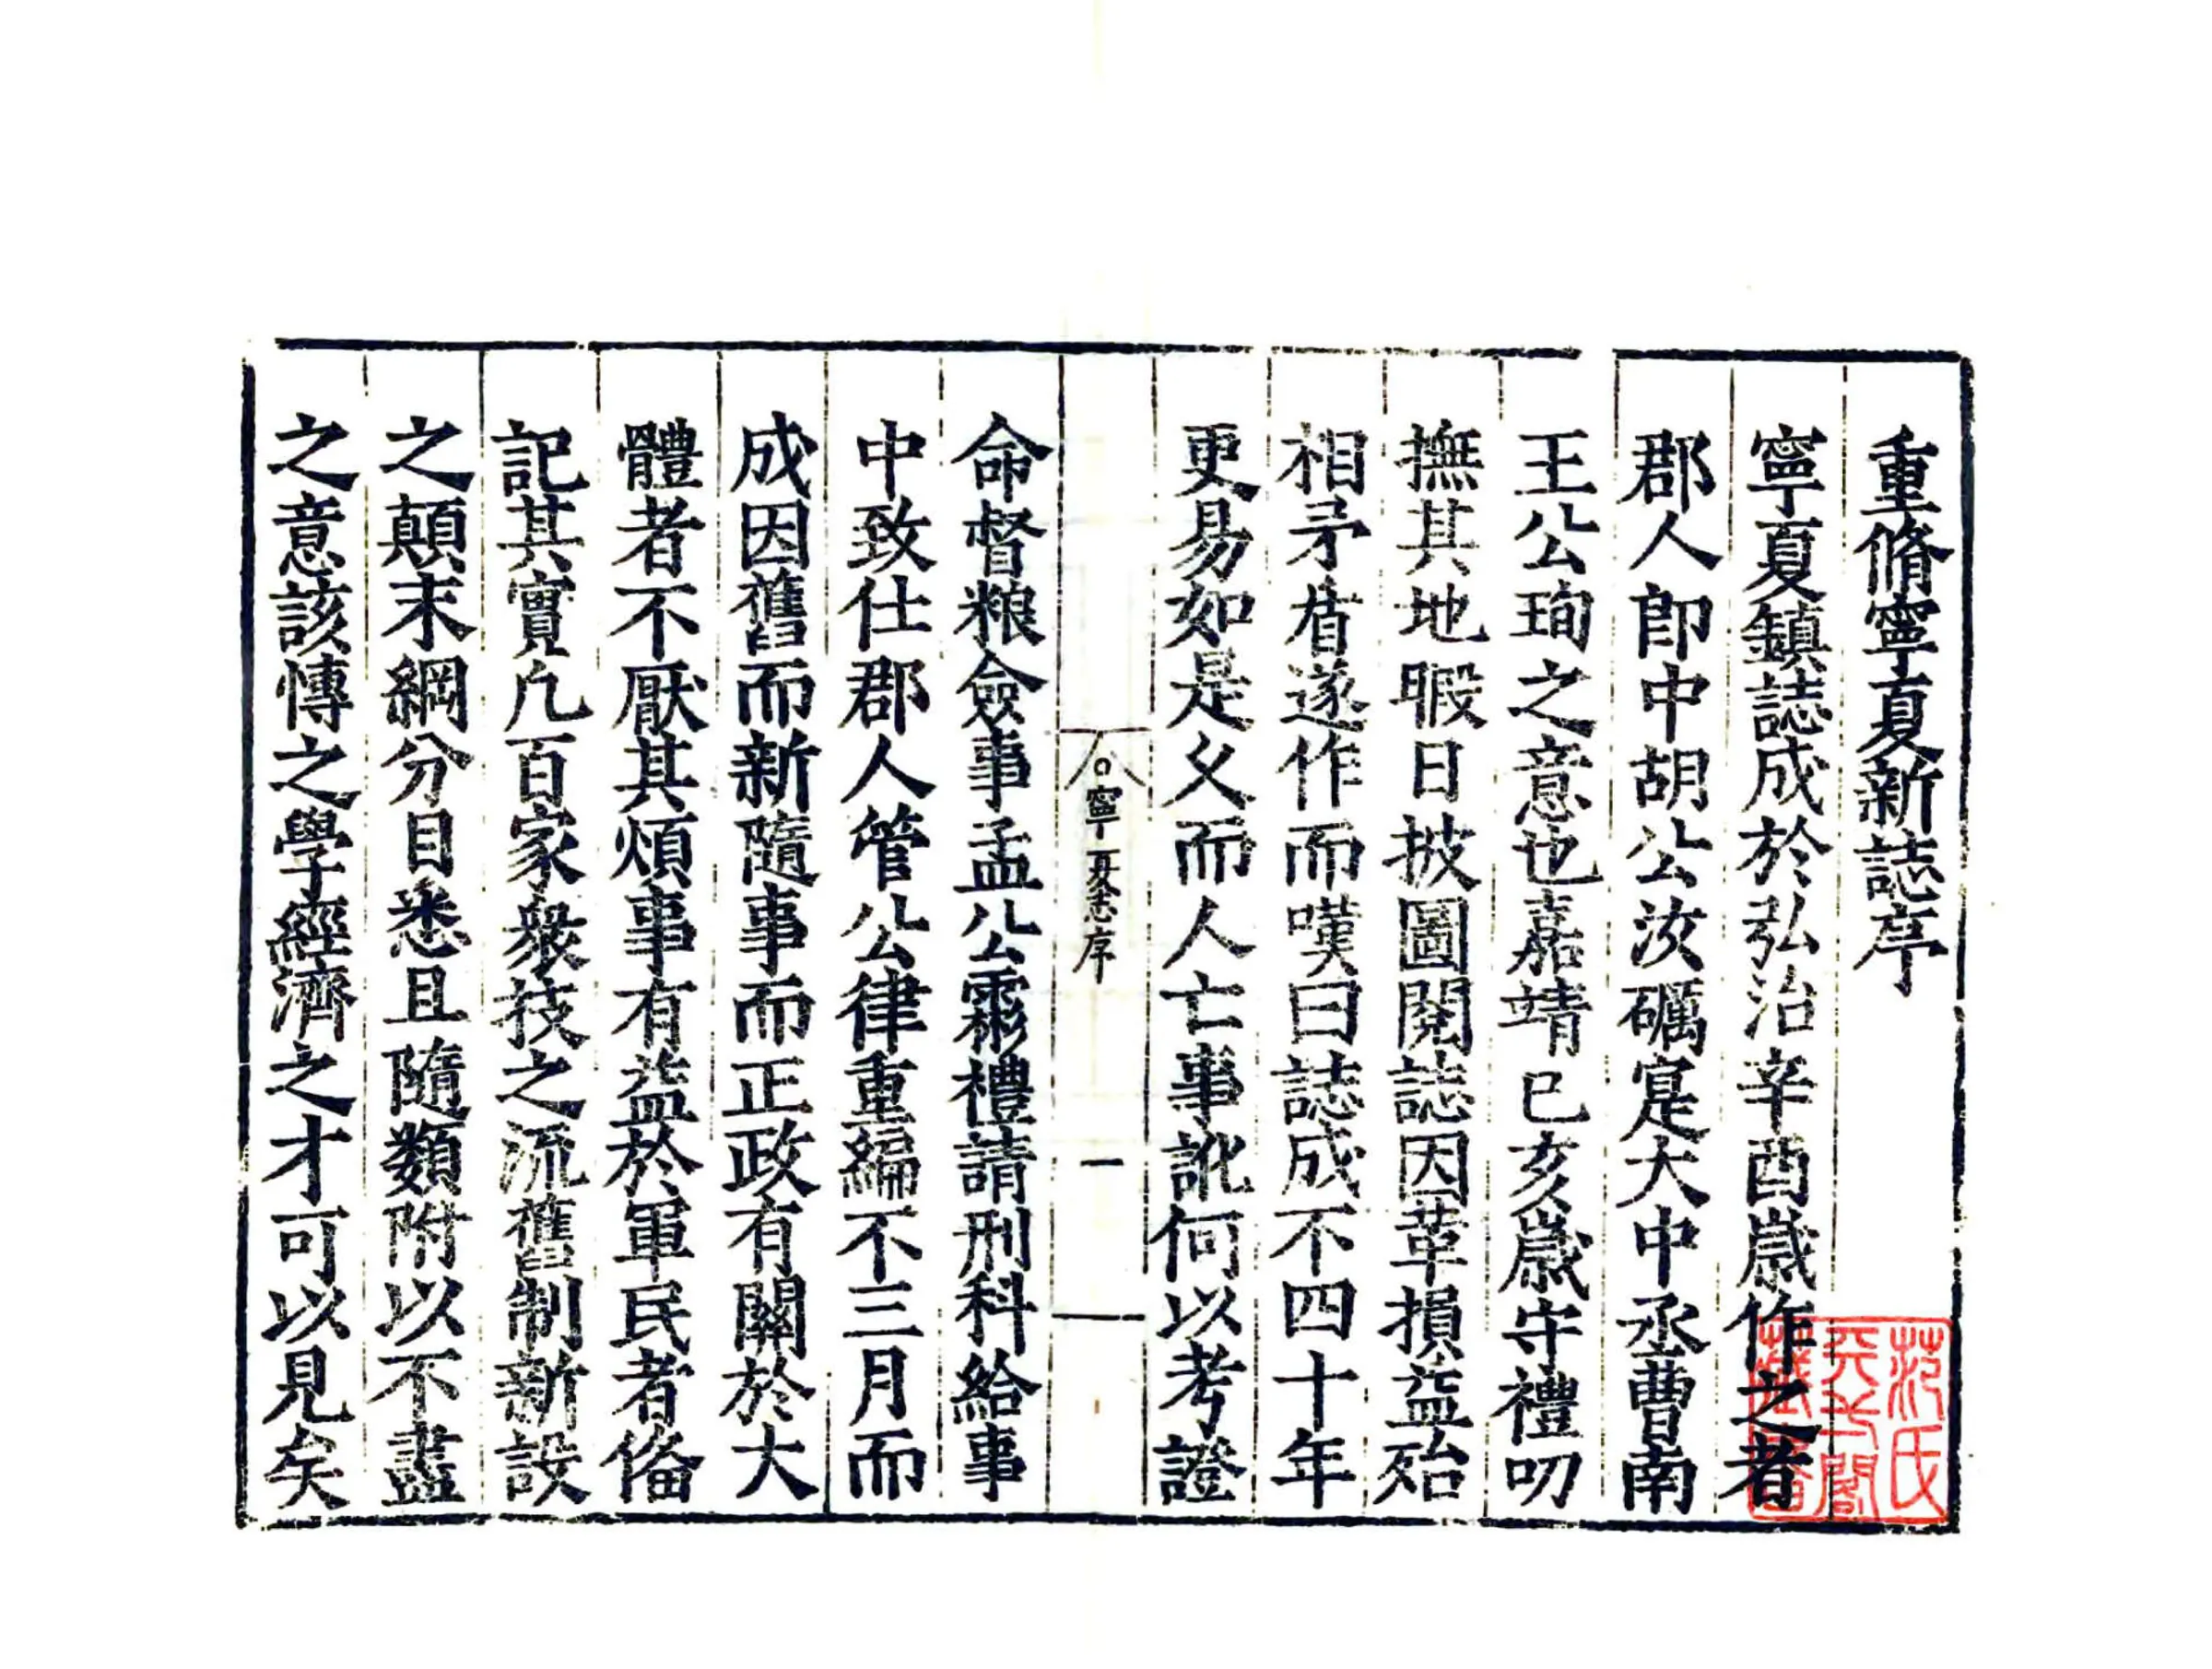 重脩寧夏新誌序
寧夏鎮誌成於弘治辛酉歲作之者
郡人郎中胡公汝礪寔大中丞曹南
王公珣之意也嘉靖已亥歲守禮叨
撫其地暇日披圖閱誌因革損益殆
相矛盾遂作而嘆曰誌成不四十年
更易如是父而人亡事訛何以考證
寧夏志序
一
命督粮僉事孟公霦禮請刑科給事
中致仕郡人管公律重編不三月而
成因舊而新隨事而正政有關於大
體者不厭其煩事有益於軍民者俻
記其實凢百家衆技之流舊制新設
之顛末綱分目悉且隨類附以不盡
之意該慱之學經濟之才可以見矣
范氏
天一閣
藏書